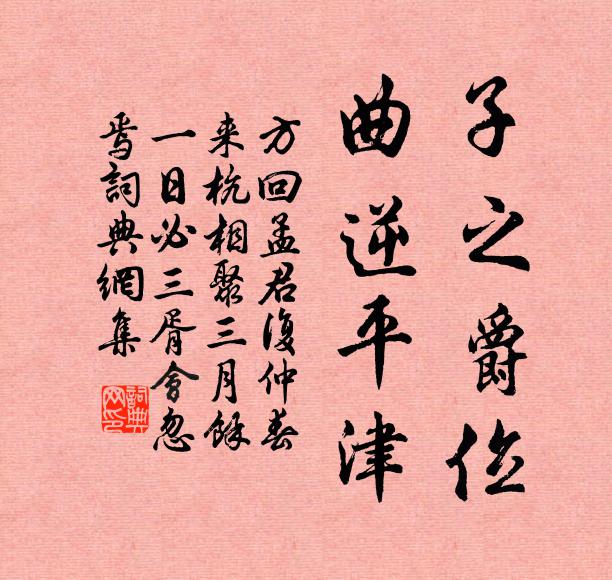 子之爵位
曲逆平津
方回孟君復仲春
来杭相聚三月餘
一日必三胥會忽
焉詞典網集
詞典
网印